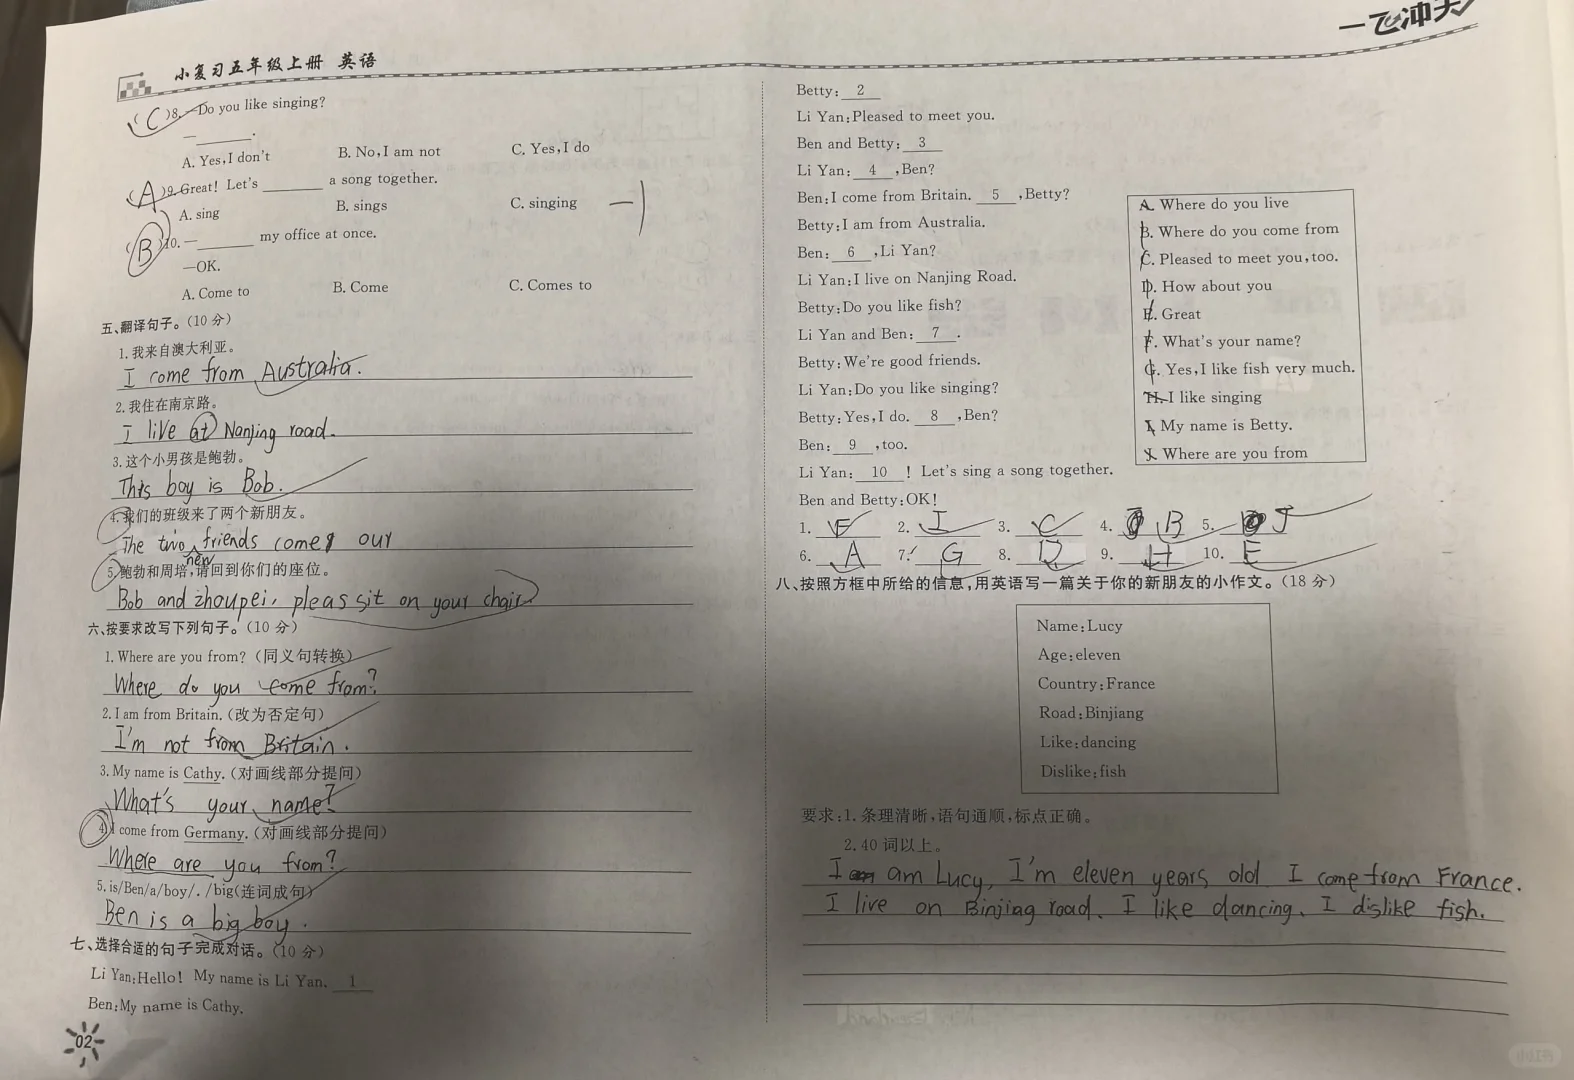 小复习五年级上册 英语
一飞冲天
(C)8.—Do you like singing?
—________.
A. Yes,I don't B. No,I am not C. Yes,I do
(A)9.Great! Let's ________ a song together.
A. sing B. sings C. singing
(B)10.—________ my office at once.
—OK.
A. Come to B. Come C. Comes to
五、翻译句子。(10 分)
1.我来自澳大利亚。
I come from Australia.
2.我住在南京路。
I live at Nanjing road.
3.这个小男孩是鲍勃。
This boy is Bob.
4.我们的班级来了两个新朋友。
The two new friends come our
5.鲍勃和周培,请回到你们的座位。
Bob and zhoupei, pleas sit on your chair
六、按要求改写下列句子。(10 分)
1. Where are you from? (同义句转换)
Where do you come from?
2. I am from Britain. (改为否定句)
I'm not from Britain.
3. My name is Cathy. (对画线部分提问)
What's your name?
4. I come from Germany. (对画线部分提问)
Where are you from?
5. is/Ben/a/boy/. /big(连词成句)
Ben is a big boy.
七、选择合适的句子完成对话。(10 分)
Li Yan:Hello! My name is Li Yan. 1
Ben:My name is Cathy.
02
Betty: 2
Li Yan:Pleased to meet you.
Ben and Betty: 3
Li Yan: 4 ,Ben?
Ben:I come from Britain. 5 ,Betty?
Betty:I am from Australia.
Ben: 6 ,Li Yan?
Li Yan:I live on Nanjing Road.
Betty:Do you like fish?
Li Yan and Ben: 7 .
Betty:We're good friends.
Li Yan:Do you like singing?
Betty:Yes,I do. 8 ,Ben?
Ben: 9 ,too.
Li Yan: 10 ! Let's sing a song together.
Ben and Betty:OK!
A. Where do you live
B. Where do you come from
C. Pleased to meet you,too.
D. How about you
E. Great
F. What's your name?
G. Yes,I like fish very much.
H. I like singing
I. My name is Betty.
J. Where are you from
1. F 2. I 3. C 4. B 5. J
6. A 7. G 8. D 9. H 10. E
八、按照方框中所给的信息,用英语写一篇关于你的新朋友的小作文。(18 分)
Name:Lucy
Age:eleven
Country:France
Road:Binjiang
Like:dancing
Dislike:fish
要求:1.条理清晰,语句通顺,标点正确。
2. 40 词以上。
I am Lucy, I'm eleven years old. I come from France.
I live on Binjiag road. I like dancing. I dislike fish.
小红书